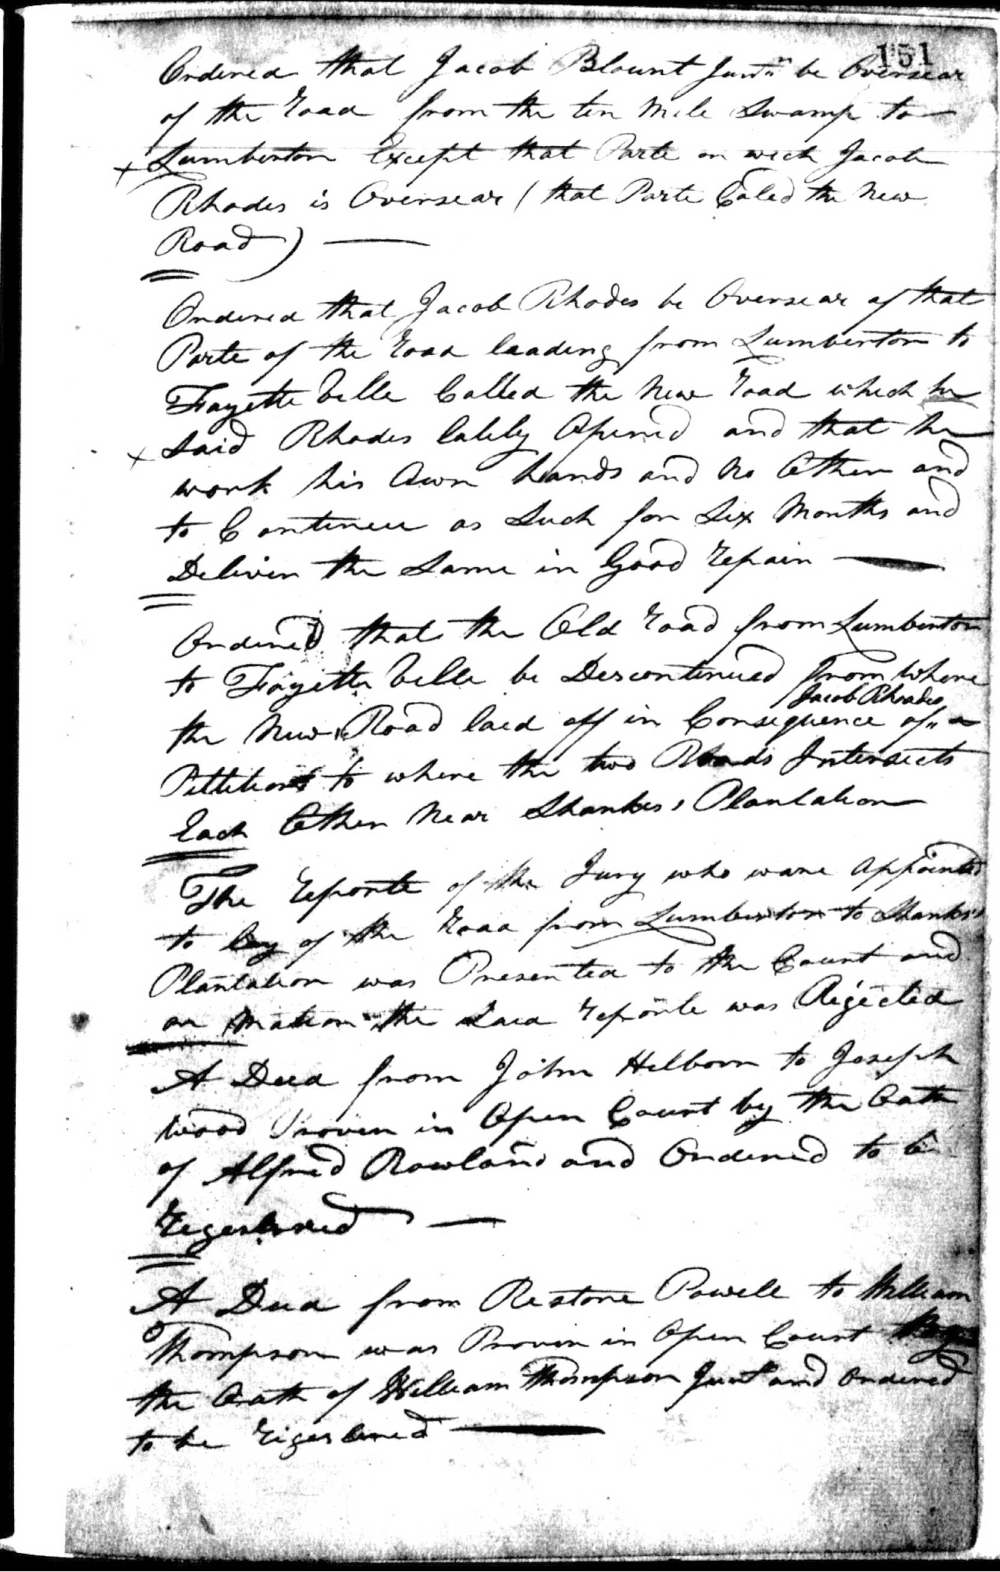 151
Ordered that Jacob Blount Junr be Oversear
of the road from the ten Mile Swamp to
Lumberton Except that Parte on wich Jacob
Rhodes is Oversear (that Parte Caled the New
Road)
Ordered that Jacob Rhodes be Oversear of that
Parte of the road leading from Lumberton to
Fayette Ville Called the New road which he
Said Rhodes lately Opened and that he
work his Own hands and No Other and
to Continue as Such for Six Months and
Deliver the Same in Good repair
Ordered that the Old road from Lumberton
to Fayette Ville be Descontinued from where
Jacob Rhodes
the New Road laid off in Consequence of a
Pittition to where the two Roads Intersects
Each Other Near Shankes Plantation
The reporte of the Jury who ware appointed
to lay of the road from Lumberton to Shankes
Plantation was Presented to the Court and
on Motion the Said reporte was Rejected
A Deed from John Hilborn to Joseph
Wood Proven in Open Court by the Oath
of Alfred Rowland and Ordered to be
Regestered
A Deed from Restore Powell to William
Thompson was Proven in Open Court By
the Oath of William Thompson Junr and Ordered
to be Regestered